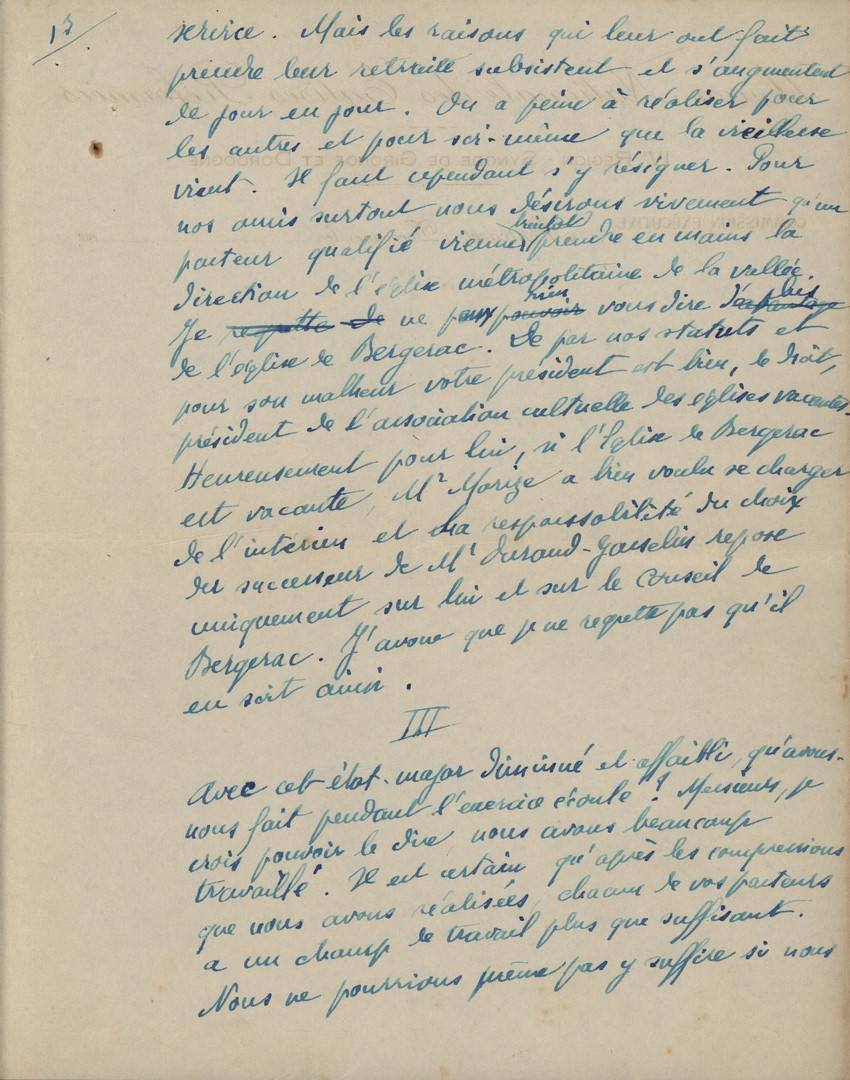 13/
service. Mais les raisons qui leur ont fait
prendre leur retraite subsistent et s'augmentent
de jour en jour. On a peine à réaliser pour
les autres et pour soi-même que la vieillesse
vient. Il faut cependant s'y résigner. Pour
nos amis surtout nous désirons vivement qu'un
bientôt
pasteur qualifié vienne prendre en mains la
direction de l'église métropolitaine de la vallée.
rien plus
Je regrette de ne peux pouvoir vous dire davantage
de l'église de Bergerac. De par nos statuts et
pour son malheur votre président est bien, de droit,
président de l'association cultuelle des églises vacantes.
Heureusement pour lui, si l'Eglise de Bergerac
est vacante, Mr Morize a bien voulu se charger
de l'intérim et la responsabilité du choix
du successeur de Mr Durand-Gasselin repose
uniquement sur lui et sur le Conseil de
Bergerac. J'avoue que je ne regrette pas qu'il
en soit ainsi.
III
Avec cet état-major diminué et affaibli, qu'avons-
nous fait pendant l'exercice écoulé? Messieurs, je
crois pouvoir le dire, nous avons beaucoup
travaillé. Il est certain qu'après les compressions
que nous avons réalisées, chacun de vos pasteurs
a un champ de travail plus que suffisant.
Nous ne pourrions même pas y suffire si nous